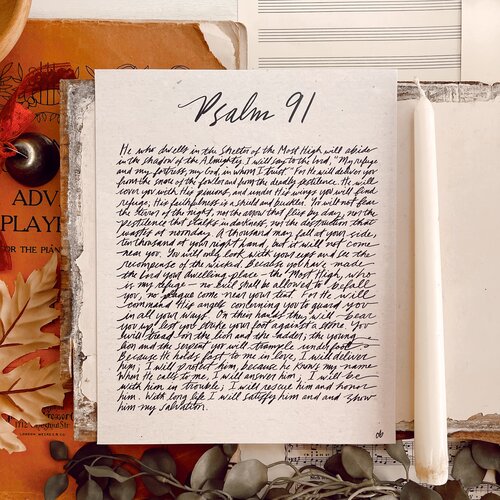 Psalm 91
He who dwells in the Shelter of the Most High will abide
in the shadow of the Almighty. I will say to the Lord, "My refuge
and my fortress, my God, in whom I trust." For He will deliver you
from the snare of the fowler and from the deadly pestilence. He will
cover you with His pinions, and under His wings you will find
refuge; His faithfulness is a shield and buckler. You will not fear
the terror of the night, nor the arrow that flies by day, nor the
pestilence that stalks in darkness, nor the destruction that
wastes at noonday. A thousand may fall at your side,
ten thousand at your right hand, but it will not come
near you. You will only look with your eyes and see the
recompense of the wicked. Because you have made
the Lord your dwelling place - the Most High, who
is my refuge - no evil shall be allowed to befall
you, no plague come near your tent. For He will
command His angels concerning you to guard you
in all your ways. On their hands they will bear
you up, lest you strike your foot against a stone. You
will tread on the lion and the adder; the young
lion and the serpent you will trample underfoot.
Because He holds fast to me in love, I will deliver
him; I will protect him, because he knows my name
When he calls to me, I will answer him; I will be
with him in trouble; I will rescue him and honor
him. With long life I will satisfy him and show
him my salvation.
ADV
PLAYE
FOR THE PIAN
LONDON